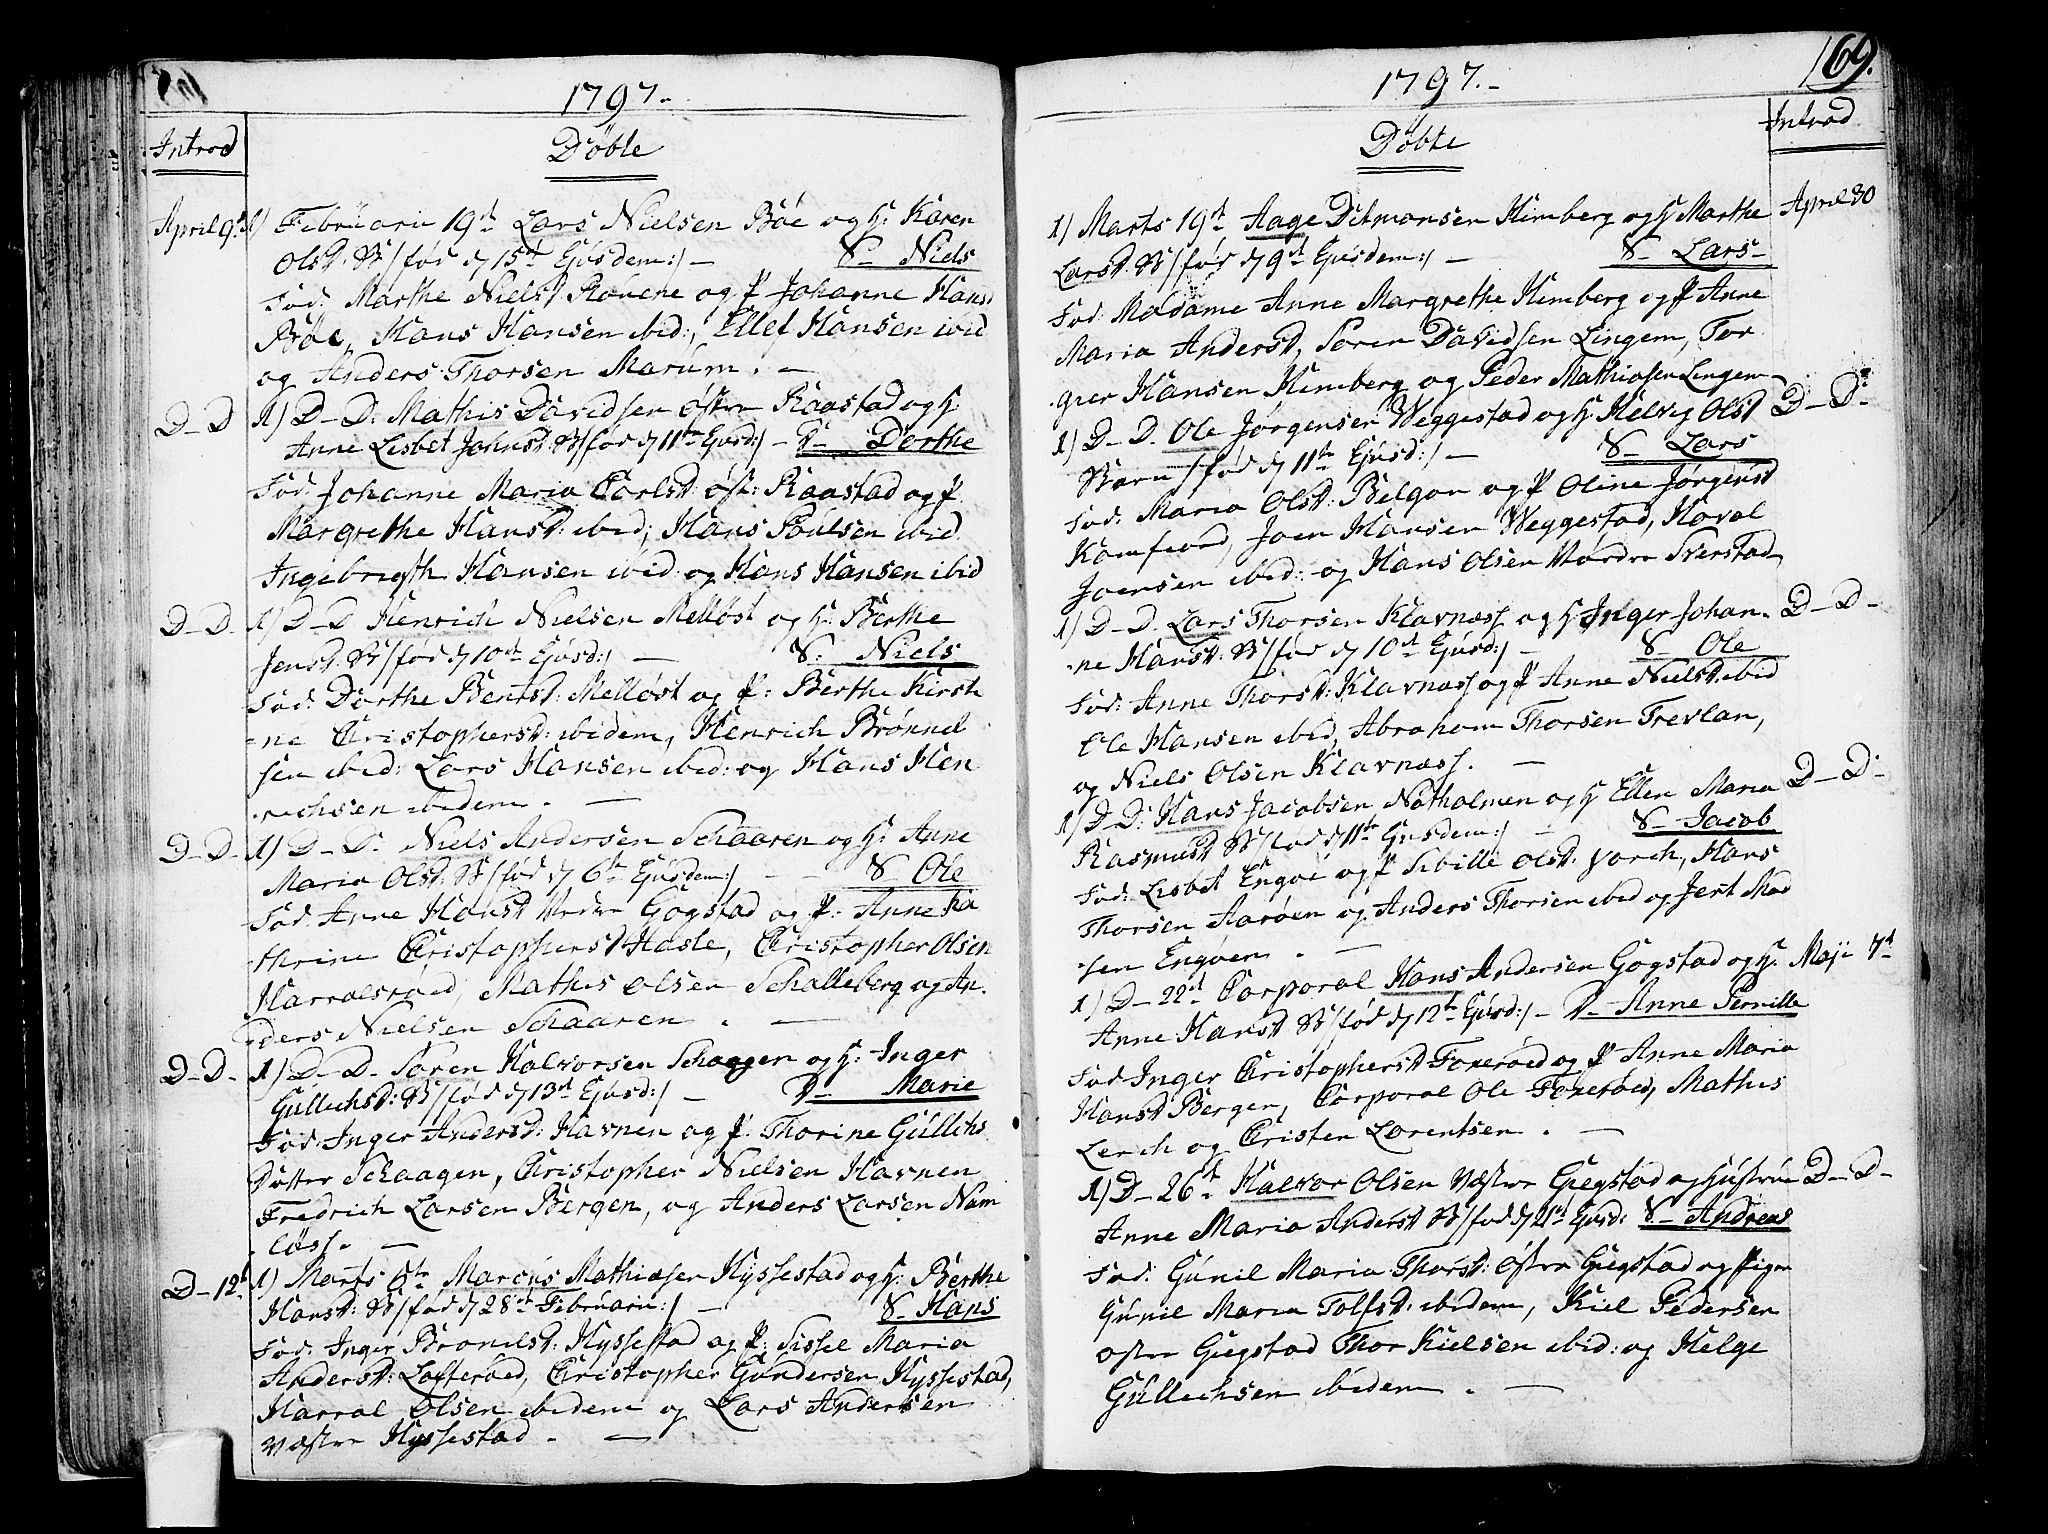 1797.
Introd
Döbte
April 9d 1) Februarii 19d Lars Nielsen Böe og H: Karen
Olsd: B/ föd d 15d Ejusdem:/ — S— Niels
Fad: Marthe Nielsd Röuene og P Johanne Hans
Böe, Hans Hansen ibid:, Ellef Hansen ibid
og Anders Thorsen Marúm. —
D—D 1) D—D: Mathis Davidsen östre Raastad og H.
Anne Lisbet Johnsd: B/ föd d 11te Ejusd:/ — D— Dorthe
Fad: Johanne Maria Carlsd öst: Raastad og P.
Margrethe Hansd: ibid; Hans Poulsen ibid.
Ingebrigth Hansen ibid og Hans Hansen ibid
D—D— 1) D—D Henrich Nielsen Melløst og H: Berthe
Jensd: B/ föd d 10de Ejusd:/ — S: Niels
Fad: Dorthe Bentsd: Melløst og P: Berthe Kirsti
-ne Christophersd: ibidem, Henrich Brönnel
sen ibid: Lars Hansen ibid: og Hans Hen
richsen ibidem. —
D—D— 1) D—D: Niels Andersen Schaaren og H: Anne
Maria Olsd: B/ föd d 6te Ejusdem:/ — S Ole
Fad Anne Hansd Nedre Gogstad og P: Anne Ka
thrine Christophersd Hasle, Christopher Olsen
Harralsroed, Mathis Olsen Schalleberg og An-
ders Nielsen Schaaren. —
D—D— 1) D—D— Sören Halvorsen Schaagen og H: Inger
Gullichsd: B/ föd d 13d Ejusd:/ — D— Marie
Fad: Inger Andersd: Havnen og P. Thorine Gullichs
Datter Schaagen, Christopher Nielsen Havnen
Fredrich Larsen Bergen, og Anders Larsen Nam
løss. —
D—12t 1) Marts 5te Marcus Mathiasen Hyssestad og H: Berthe
Hansd: B/ föd d 28de Februarii:/ — S— Hans
Fad: Inger Bronilsd: Hyssestad og P: Sissel Maria
Andersd: Lofteröed, Christopher Gundersen Hyssestad,
Harral Olsen ibidem og Lars Andersen
Vestre Hyssestad. —
1797.—
169.
Döbte
Introd
1) Marts 19d Aage Ditmansen Himberg og H Marthe April 30
Larsd: B/ föd d 9d Ejusdem:/ — S— Lars—
Fad: Madame Anne Margrethe Himberg og P Anne
Maria Andersd, Sören Davidsen Lingem, Tor
grer Hansen Himberg og Peder Mathiasen Lingem
1) D—D. Ole Jørgensen Weggestad og H: Helvig Olsd D—D—
Barn/ föd d 11te Ejusd:/ — S— Lars
Fad: Maria Olsd: Belgau og P Oline Jørgensd
Kamfeord, Joen Hansen Weggestad, Haval
Joensen ibid: og Hans Olsen Nordre Sverstad
1) D—D. Lars Thorsen Klavnass og H Inger Johan- D—D—
-ne Hansd: B/ föd d 10d Ejusd:/ — S— Ole
Fad: Anne Thorsd: Klavnass og P Anne Nielsd ibid
Ole Hansen ibid, Abraham Thorsen Trevlan,
og Niels Olsen Klavnass. —
1) D—D: Hans Jacobsen Natholmen og H Ellen Maria D—D—
Rasmusd B/ föd d 11te Ejusdem:/ — S— Jacob
Fad: Lisbet Engöe og P Sibille Olsd: Vorch, Hans
Thorsen Aaröen og Anders Thorsen ibid og Jert Mad
sen Engöen. —
1) D—22d Corporal Hans Andersen Gogstad og H: Maji 7d
Anne Hansd B/ föd d 12te Ejusd:/ — D— Anne Pernille
Fad Inger Christophersd Foxeröed og P Anne Maria
Hansd Bergen, Corporal Ole Foxeröed, Mathis
Lerch og Christen Lorentsen. —
1) D—26te Halvor Olsen Vestre Giegstad og Hustrue D—D—
Anne Maria Andersd B/ föd d 21d Ejusd: S— Andreas
Fad: Gunil Maria Thorsd: Østre Giegstad og Pigen
Gunil Maria Tolfsd: ibidem, Kiel Pedersen
Østre Giegstad Thor Kielsen ibid: og Helge
Gullichsen ibidem. —